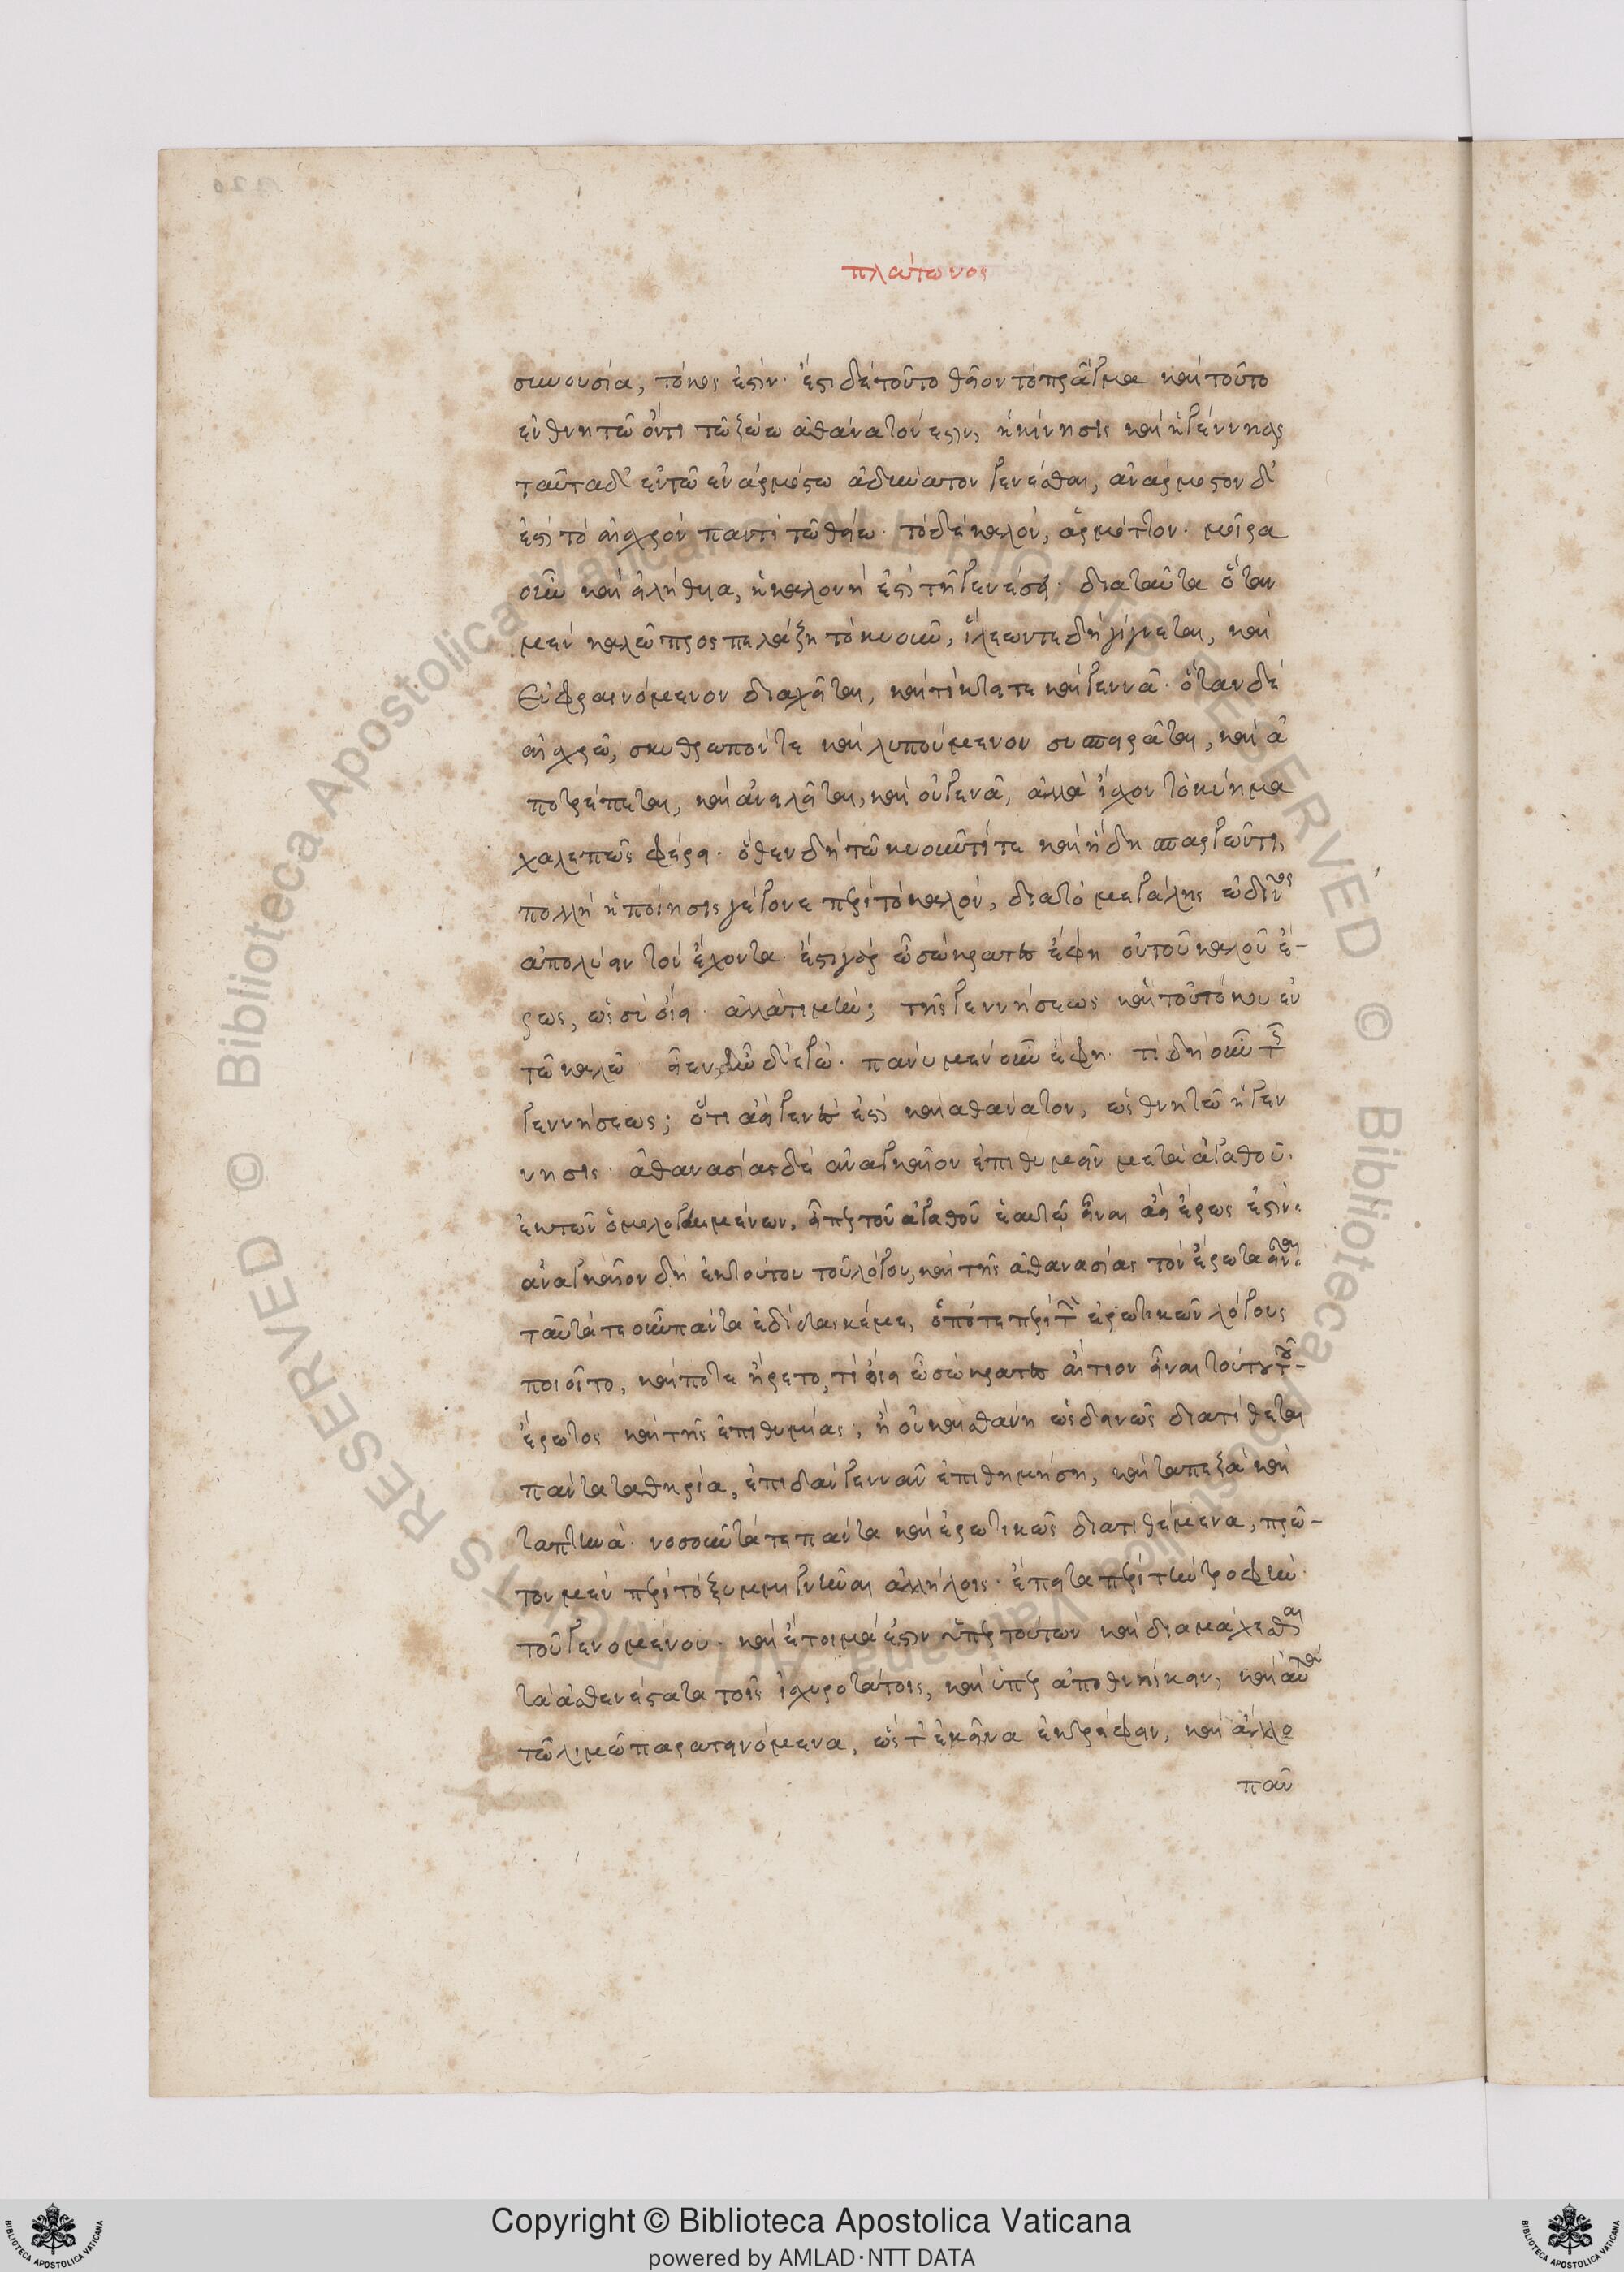 πλάτωνος
συνουσία, τόκος ἐστίν· ἔστι δὲ τοῦτο θεῖον τὸ πρᾶγμα καὶ τοῦτο
ἐν θνητῶ ὄντι τῶ ζώω ἀθάνατόν ἐστιν, ἡ κύησις καὶ ἡ γέννησις
ταῦτα δ' ἐν τῶ ἀναρμόστω ἀδύνατον γενέσθαι, ἀνάρμοστον δ'
ἐστὶ τὸ αἰσχρὸν παντὶ τῶ θείω· τὸ δὲ καλὸν, ἁρμόττον· μοῖρα
οὖν καὶ εἰλήθυια, ἡ καλονή ἐστι τῆ γενέσει· διαταῦτα ὅταν
μὲν καλῶ προσπελάζη τὸ κυοῦν, ἵλεών τε δὴ γίγνεται, καὶ
εὐφραινόμενον διαχεῖται, καὶ τίκτει τε καὶ γεννᾶ· ὅταν δὲ
αἰσχρῶ, σκυθρωπόν τε καὶ λυπούμενον συσπειρᾶται, καὶ ἀ
ποτρέπεται, καὶ ἀνειλεῖται, καὶ οὐ γενᾶ, ἀλλὰ ἴσχον τὸ κύημα
χαλεπῶς φέρει· ὅθεν δὴ τῶ κυοῦντί τε καὶ ἤδη σπαργῶντι,
πολλὴ ἡ ποίησις γέγονε περὶ τὸ καλὸν, διατὸ μεγάλης ὠδῖνος
ἀπολύειν τὸν ἔχοντα· ἔστι γὰρ ὦ σώκρατες ἔφη οὐ τοῦ καλοῦ ἔ-
ρως, ὡς σὺ οἴει· ἀλλὰ τί μήν; τῆς γεννήσεως καὶ τοῦ τόκου ἐν
τῶ καλῶ εἶεν, ἦν δ' ἐγώ· πάνυ μὲν οὖν ἔφη· τί δὴ οὖν τῆς
γεννήσεως; ὅτι ἀειγενές ἐστι καὶ ἀθάνατον, ὡς θνητῶ ἡ γέν
νησις· ἀθανασίας δὲ ἀναγκαῖον ἐπιθυμεῖν μετὰ ἀγαθοῦ.
ἐκ τῶν ὁμολογημένων, εἴπερ τοῦ ἀγαθοῦ ἑαυτῶ εἶναι ἀεὶ ἔρως ἐστίν·
ἀναγκαῖον δὴ ἐκ τούτου τοῦ λόγου, καὶ τῆς ἀθανασίας τὸν ἔρωτα εἶναι.
ταῦτά τε οὖν πάντα ἐδίδασκέ με, ὁπότε περὶ τῶν ἐρωτικῶν λόγους
ποιοῖτο, καί ποτε ἤρετο, τί οἴει ὦ σώκρατες αἴτιον εἶναι τούτου τοῦ
ἔρωτος καὶ τῆς ἐπιθυμίας; ἢ οὐκ αἰσθάνη ὡς δεινῶς διατίθεται
πάντα τα θηρία, ἐπιδὰν γεννᾶν ἐπιθημήση, καὶ τα πεζὰ καὶ
τα πτηνά· νοσοῦντά τε πάντα καὶ ἐρωτικῶς διατιθέμενα, πρῶ-
τον μὲν περὶ τὸ ξυμμιγῆναι ἀλλήλοις· ἔπειτα περὶ τὴν τροφὴν
τοῦ γενομένου· καὶ ἕτοιμά ἐστιν ὑπὲρ τούτων καὶ διαμάχεσθαι
τὰ ἀσθενέστατα τοῖς ἰσχυροτάτοις, καὶ ὑπερ ἀποθνήσκειν, καὶ αὐτὰ
τῶ λιμῶ παρατεινόμενα, ὥστ' ἐκεῖνα ἐκτρέφειν, καὶ ἄλλο
πᾶν